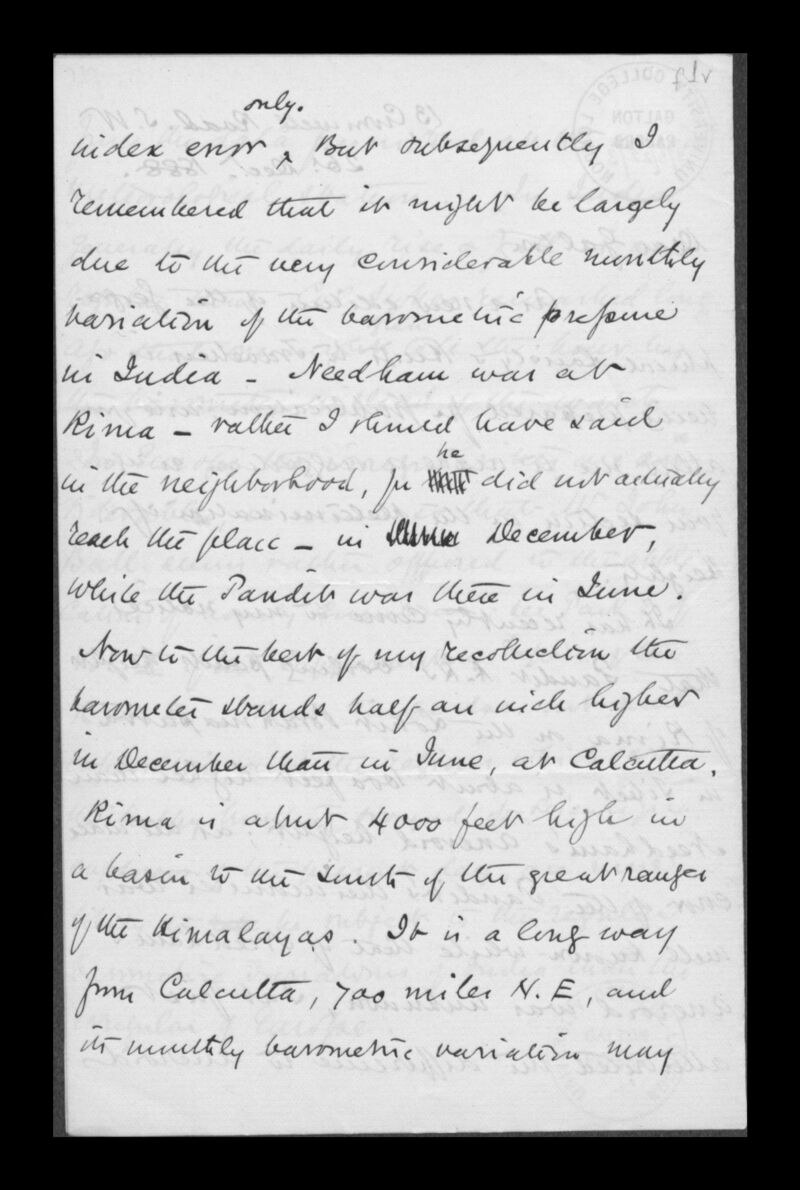 only.
index error ^ But subsequently I
remembered that it might be largely
due to the very considerable monthly
variation of the barometric pressure
in India - Needham was at
Rima - rather I should have said
he
in the neighborhood, for did not actually
reach the place - in December,
while the Pandit was there in June.
Now to the best of my recollection the
barometer stands half an inch higher
in December than in June, at Calcutta.
Rima is about 4000 feet high in
a basin to the South of the great ranges
of the Himalayas. It is a long way
from Calcutta, 700 miles N.E, and
its monthly barometric variation may